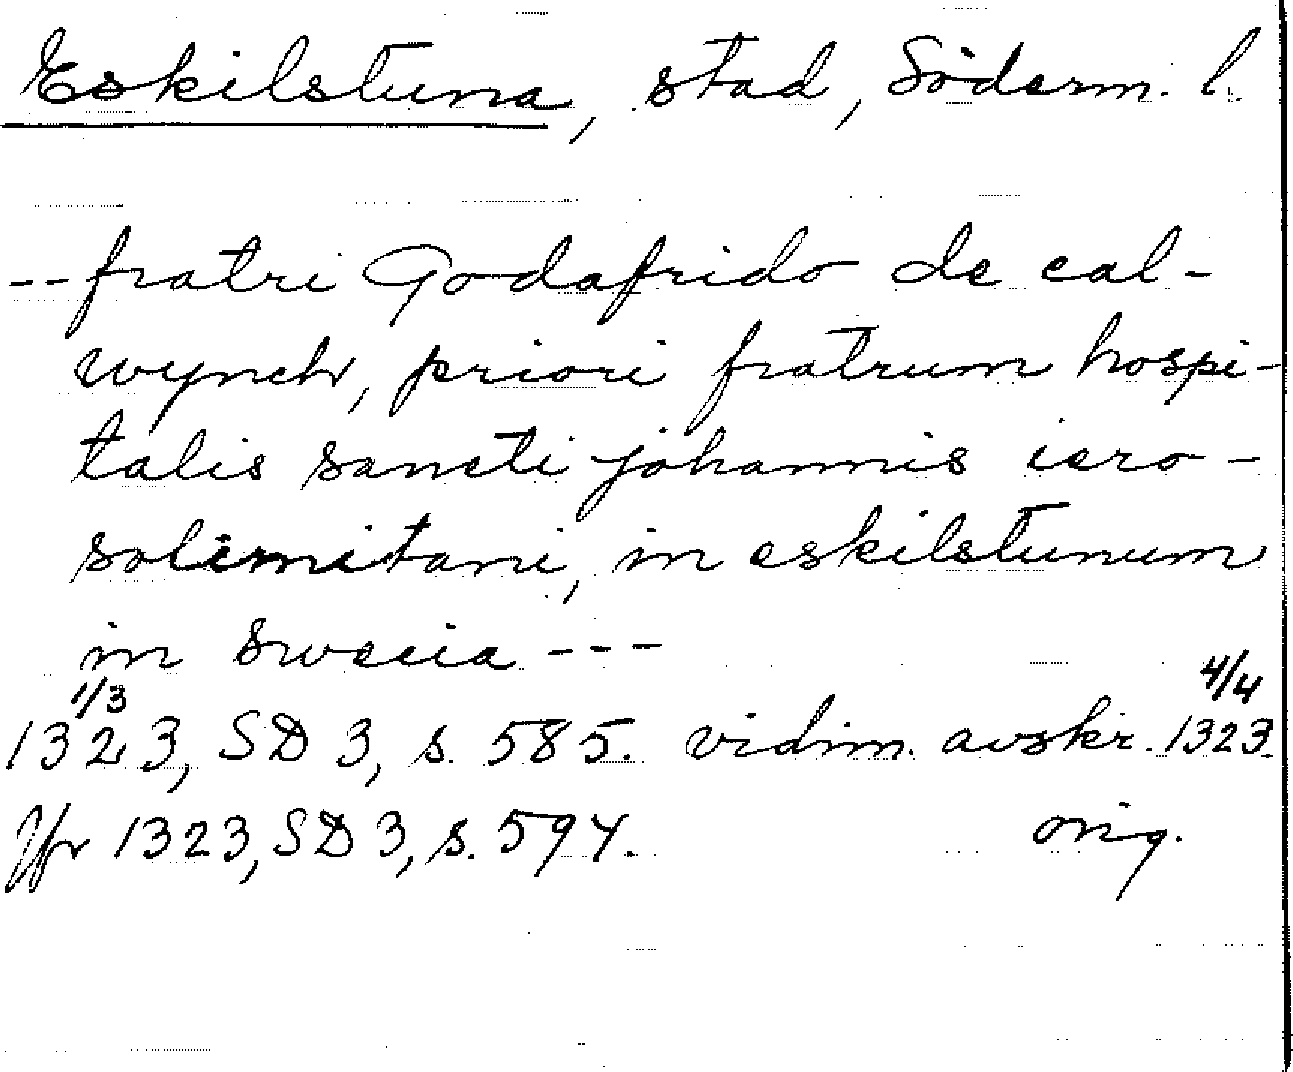 Eskilstuna, stad, Söderm. l.
--fratri Godafrido de cal-
wynch, priori fratrum hospi-
talis sancti johannis iero-
solimitani, in eskilstunum
in swecia ---
1/3 4/4
1323, SD 3, s. 585. vidim. avskr. 1323.
Jfr 1323, SD 3, s. 594. orig.